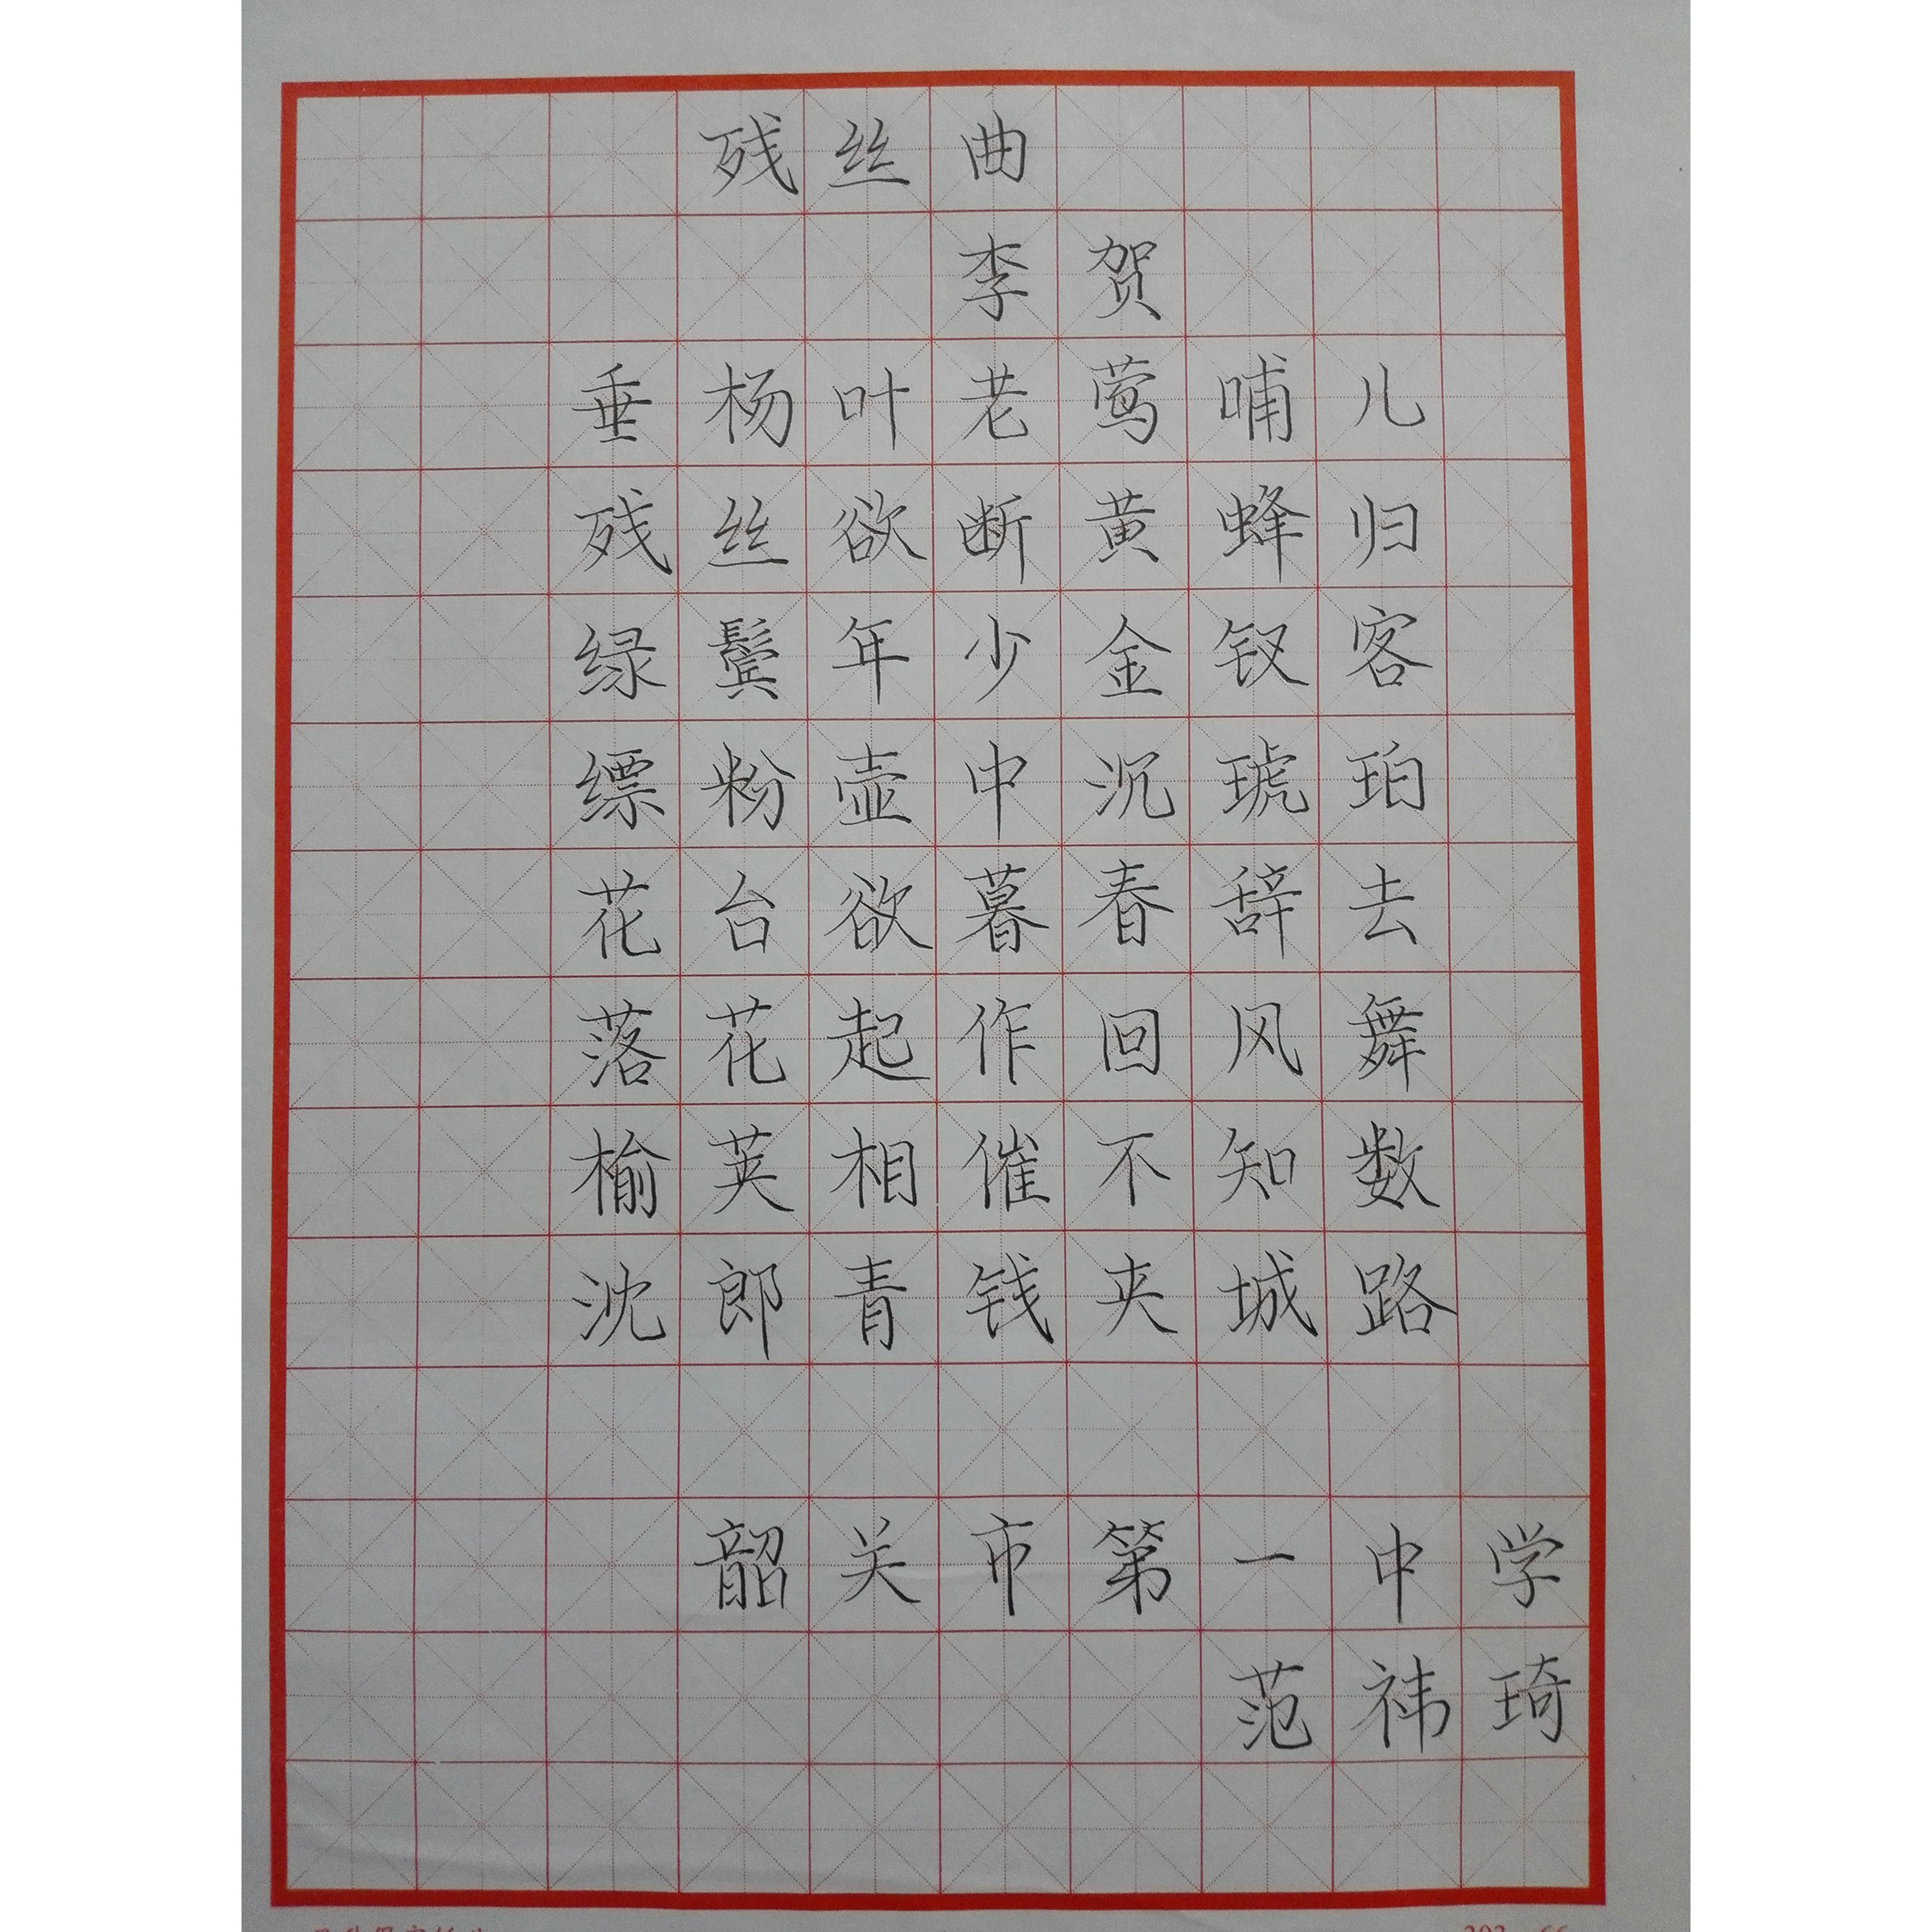 残丝曲
李贺
垂杨叶老莺哺儿
残丝欲断黄蜂归
绿鬓年少金钗客
缥粉壶中沉琥珀
花台欲暮春辞去
落花起作回风舞
榆荚相催不知数
沈郎青钱夹城路
韶关市第一中学
范祎琦